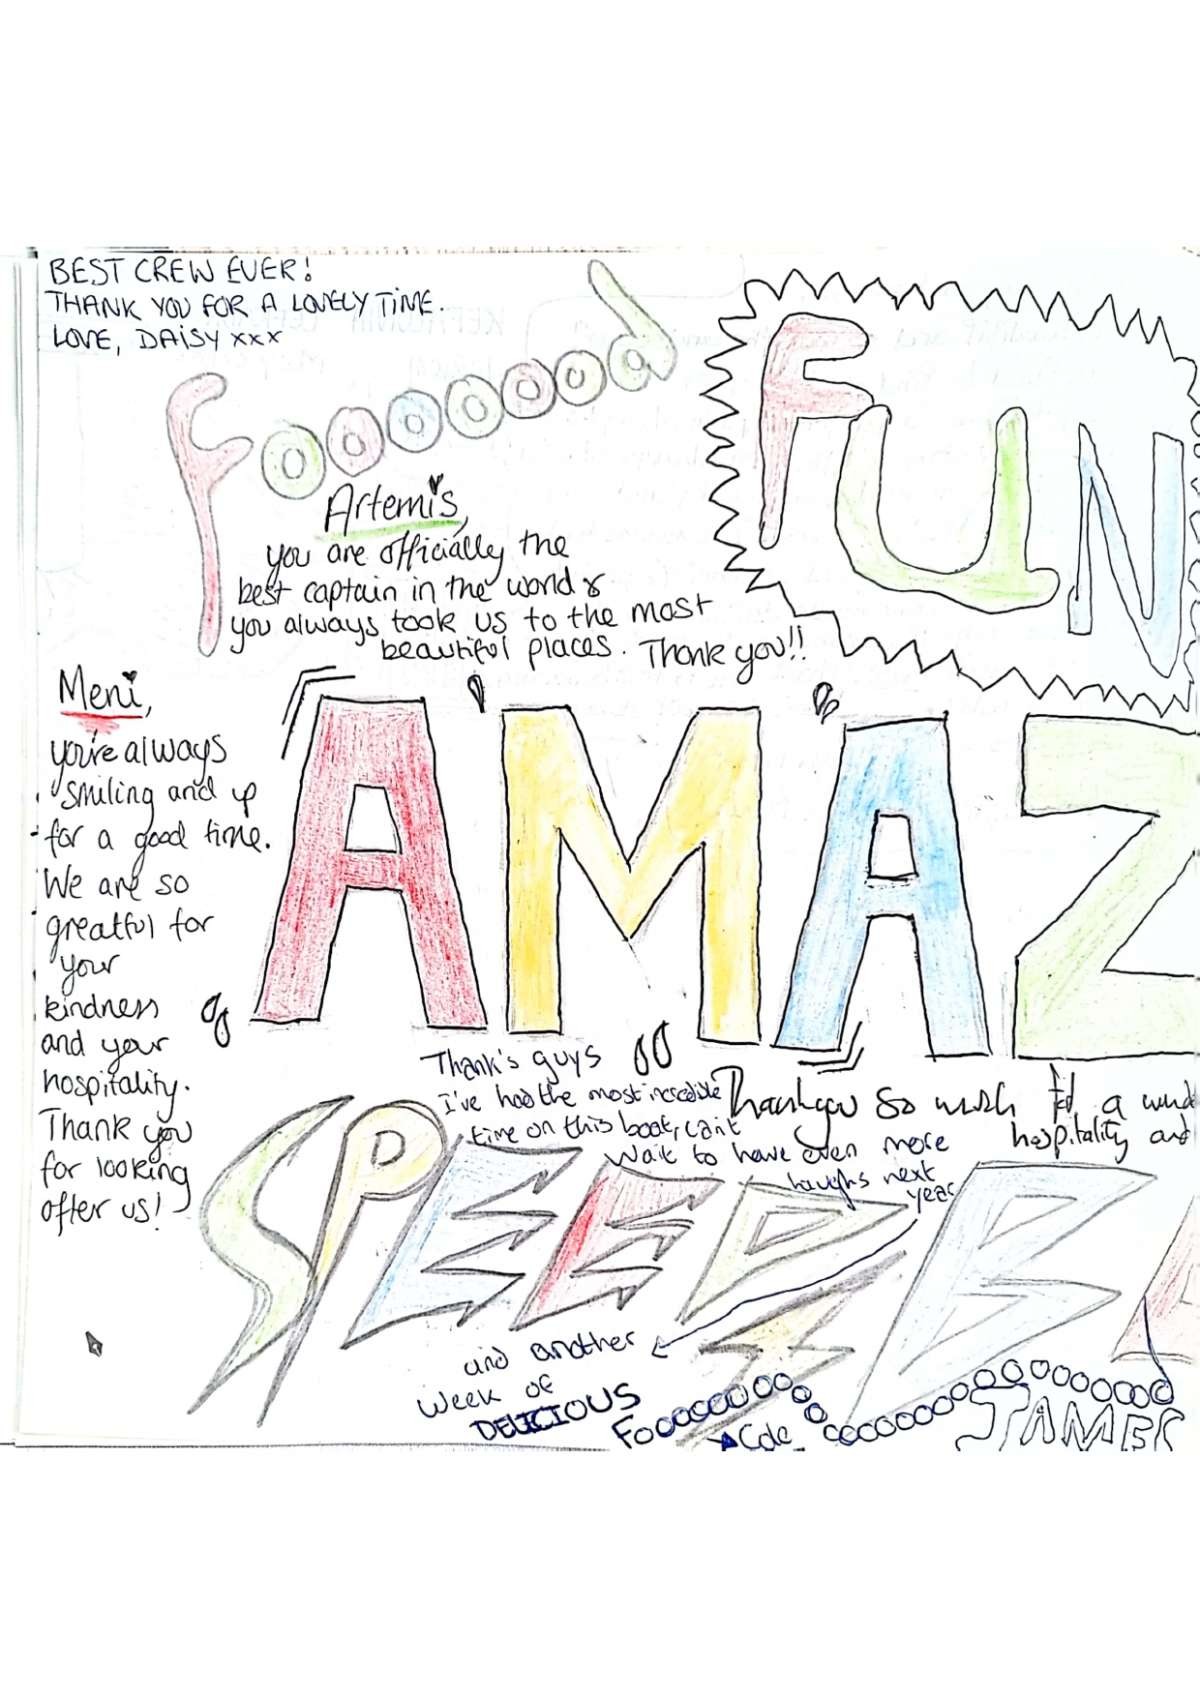 BEST CREW EVER!
THANK YOU FOR A LOVELY TIME.
LOVE, DAISY xxx
Fooooood
FUN
Artemis,
you are officially the
best captain in the world &
you always took us to the most
beautiful places. Thank you!!
Meni,
you're always
smiling and up
for a good time.
We are so
greatful for
your
kindness
and your
hospitality.
Thank you
for looking
after us!
AMAZ
Thank's guys
I've had the most incredible
time on this boat, can't
wait to have even more
laughs next
year
and another
week of
DELICIOUS
Foooooooooooooooooooooooooooooood
Cole
Thankyou so much for a
hospitality and
SPEEDB
JAMES